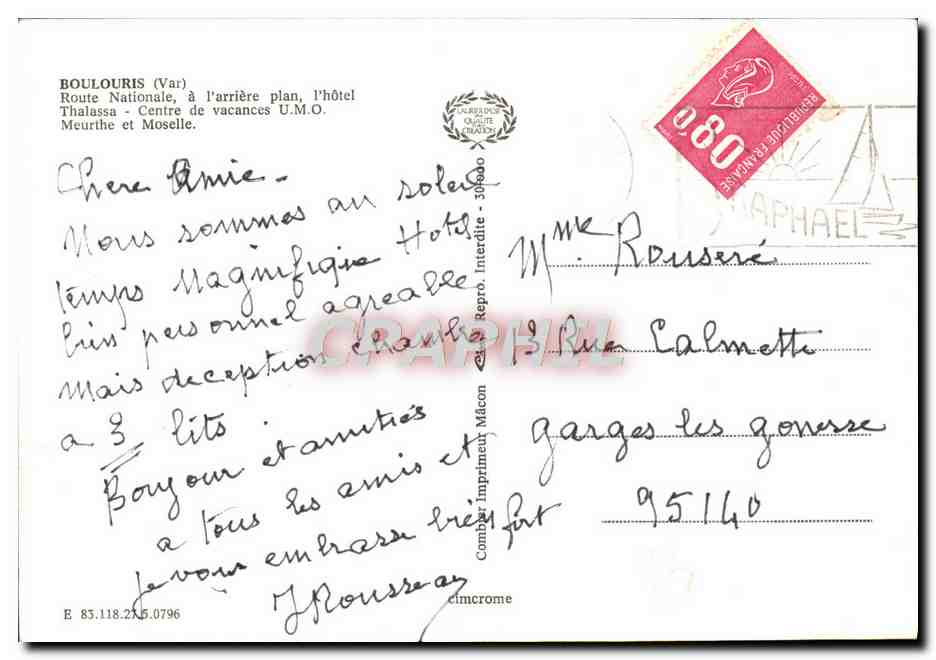 BOULOURIS (Var)
Route Nationale, à l'arrière plan, l'hôtel
Thalassa - Centre de vacances U.M.O.
Meurthe et Moselle.
Chere Amie -
Nous sommes au soleil
temps Magnifique Hotel
bien personnel agreable
Mais deception chambre
a 3 lits.
Bonjour et amitiés
a tous les amis et
je vous embrasse bien fort
J Rousseau
E 83.118.27.5.0796
LAURIER D'OR
QUALITE
CREATION
Combier Imprimeur Mâcon Repro. Interdite -
cimcrome
0,80
REPUBLIQUE FRANÇAISE
RAPHAEL
Mme Rouseré
13 Rue Calmette
garges les gonesse
95140
CPAPHIL